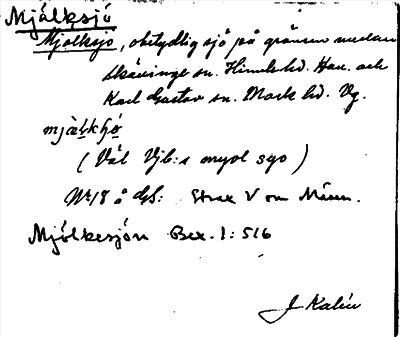 Mjölksjö
Mjölksjö, obetydlig sjö på gränsen mellan
Skällinge sn. Himle hd. Hall. och
Karl Gustav sn. Mark hd. Vg.
mjàlkhó
(Väl Vjb:s myol syo)
Nr 18 å dsf: Strax V om
Mjölkesjön Bex. 1: 516
J Kalén